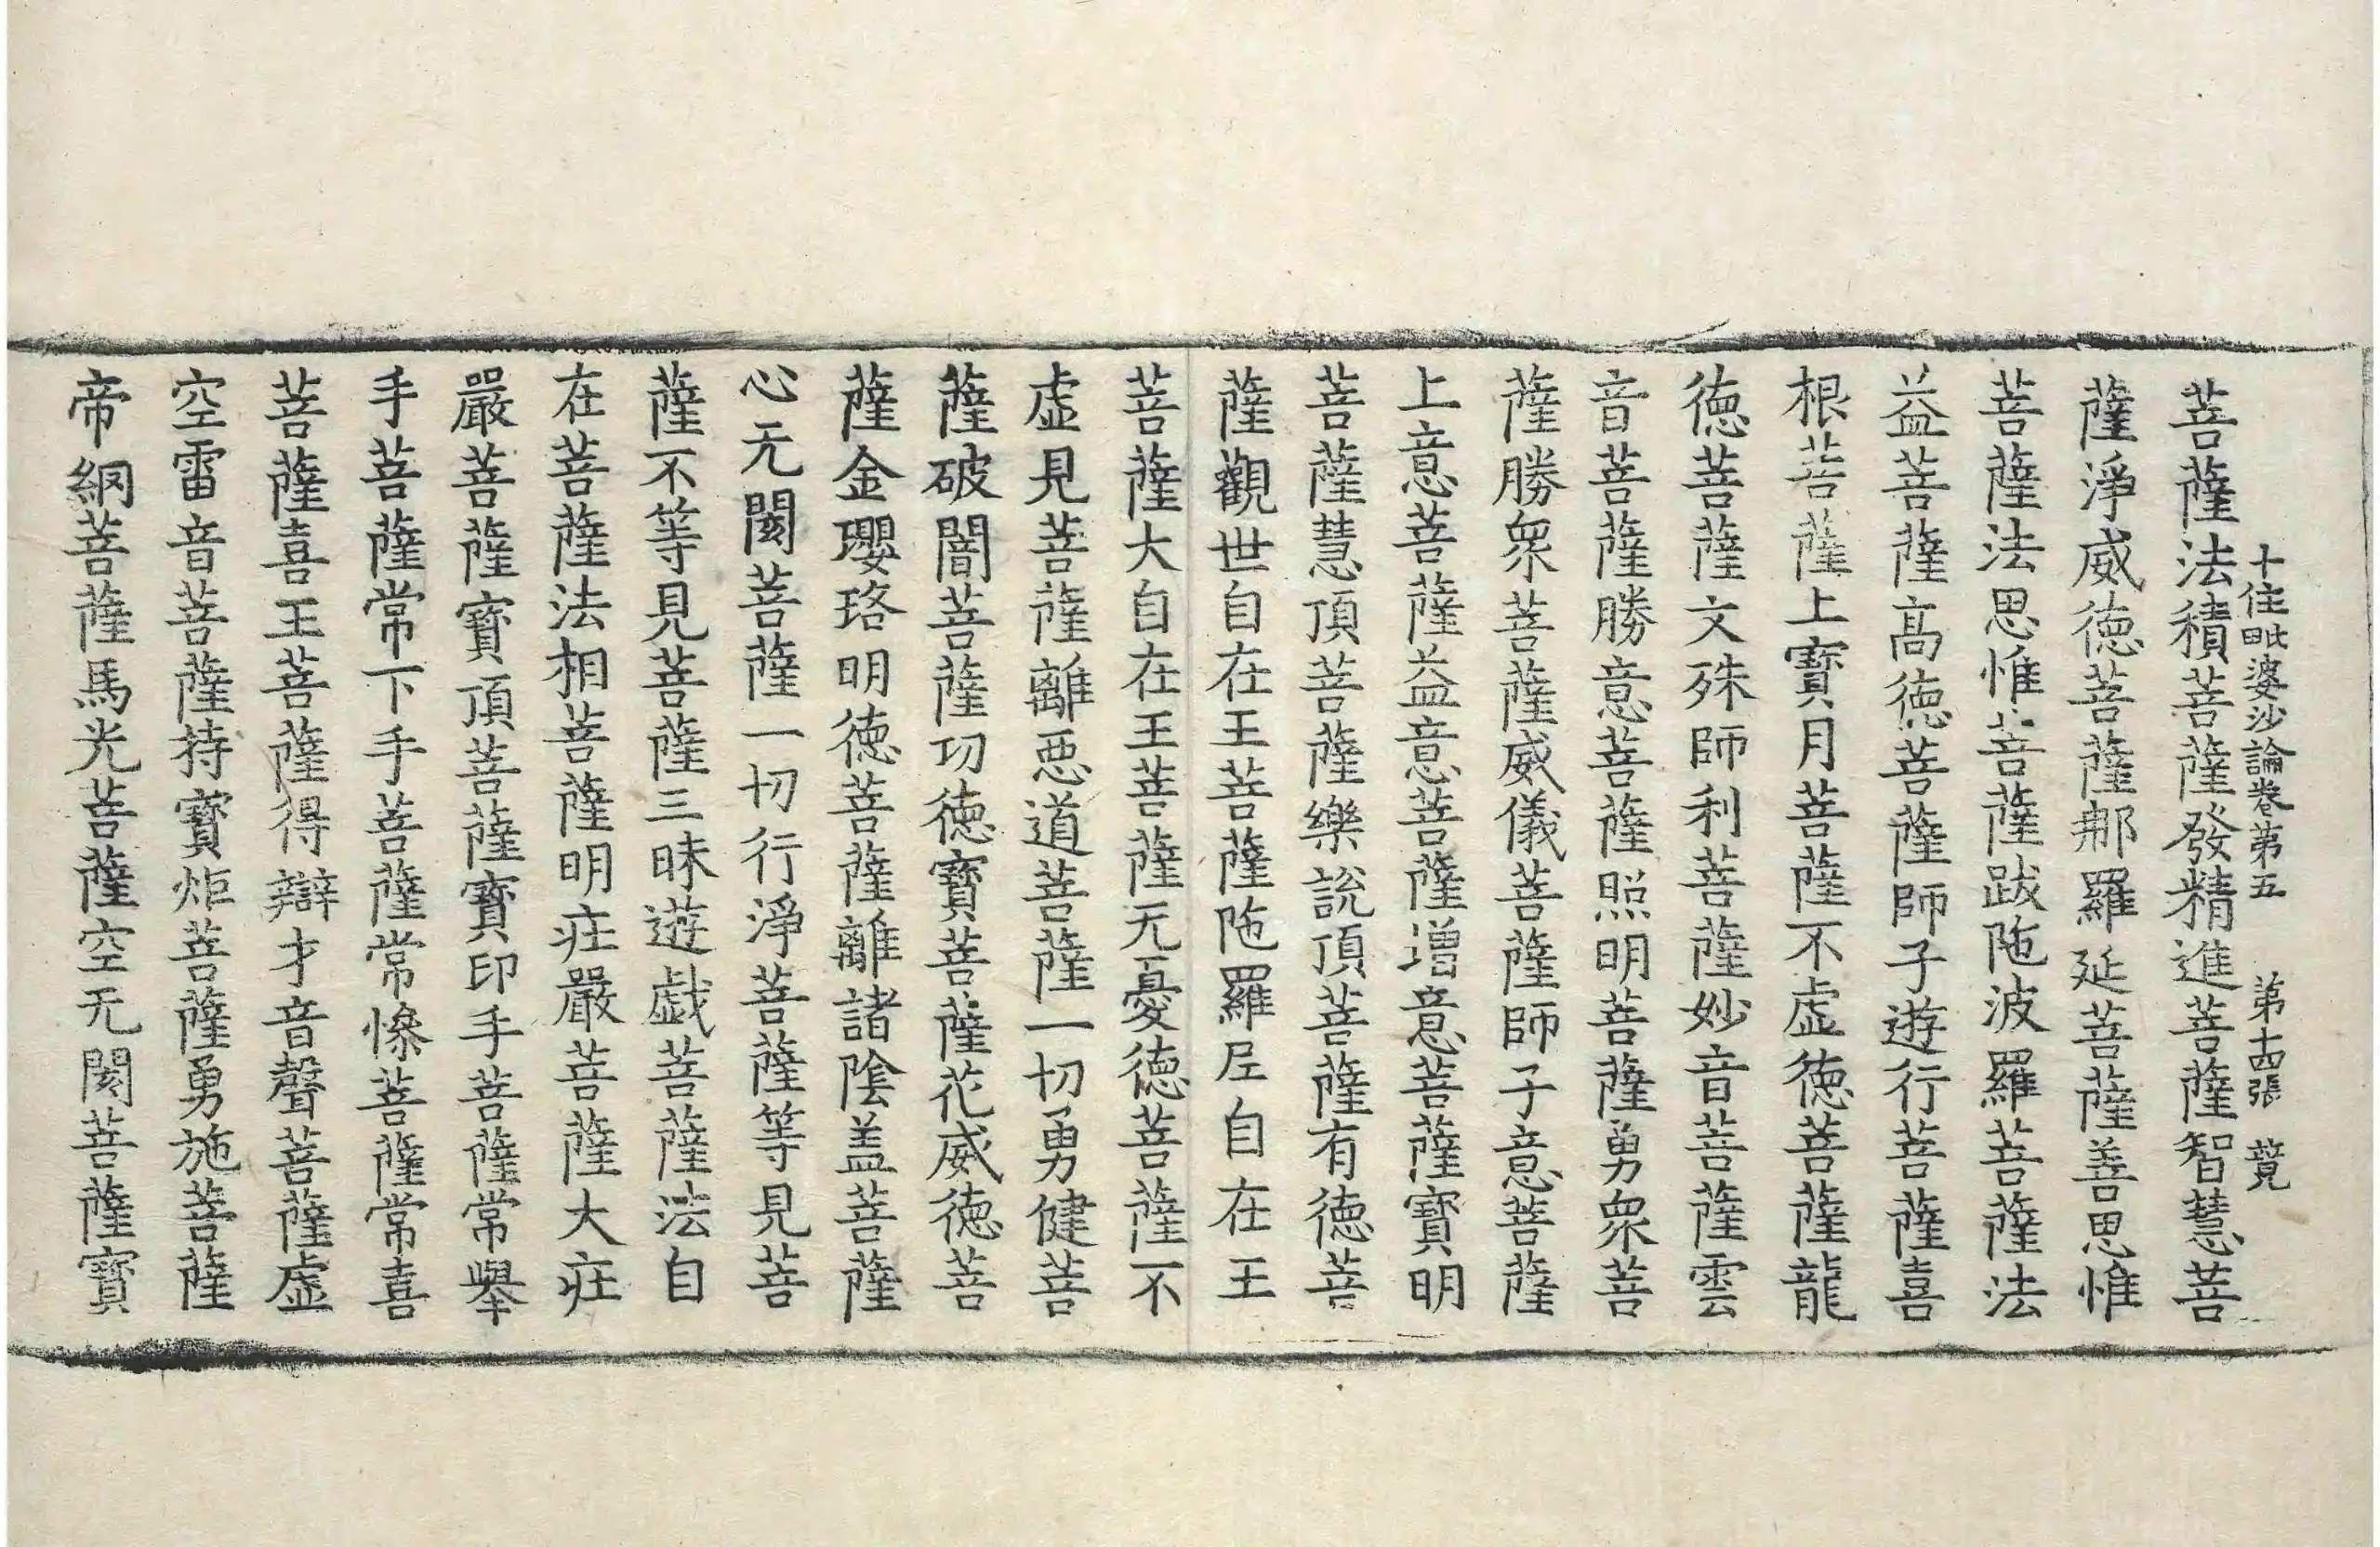 十住毗婆沙論卷第五 第十四張 竟
菩薩法積菩薩發精進菩薩智慧菩
薩淨威德菩薩那羅延菩薩善思惟
菩薩法思惟菩薩跋陁波羅菩薩法
益菩薩高德菩薩師子遊行菩薩喜
根菩薩上寶月菩薩不虛德菩薩龍
德菩薩文殊師利菩薩妙音菩薩雲
音菩薩勝意菩薩照明菩薩勇衆菩
薩勝衆菩薩威儀菩薩師子意菩薩
上意菩薩益意菩薩增意菩薩寶明
菩薩慧頂菩薩樂說頂菩薩有德菩
薩觀世自在王菩薩陁羅尼自在王
菩薩大自在王菩薩无憂德菩薩不
虛見菩薩離惡道菩薩一切勇健菩
薩破闇菩薩功德寶菩薩花威德菩
薩金瓔珞明德菩薩離諸陰盖菩薩
心无閡菩薩一切行淨菩薩等見菩
薩不等見菩薩三昧遊戱菩薩法自
在菩薩法相菩薩明莊嚴菩薩大莊
嚴菩薩寶頂菩薩寶印手菩薩常舉
手菩薩常下手菩薩常慘菩薩常喜
菩薩喜王菩薩得辯才音聲菩薩虛
空雷音菩薩持寶炬菩薩勇施菩薩
帝網菩薩馬光菩薩空无閡菩薩寶